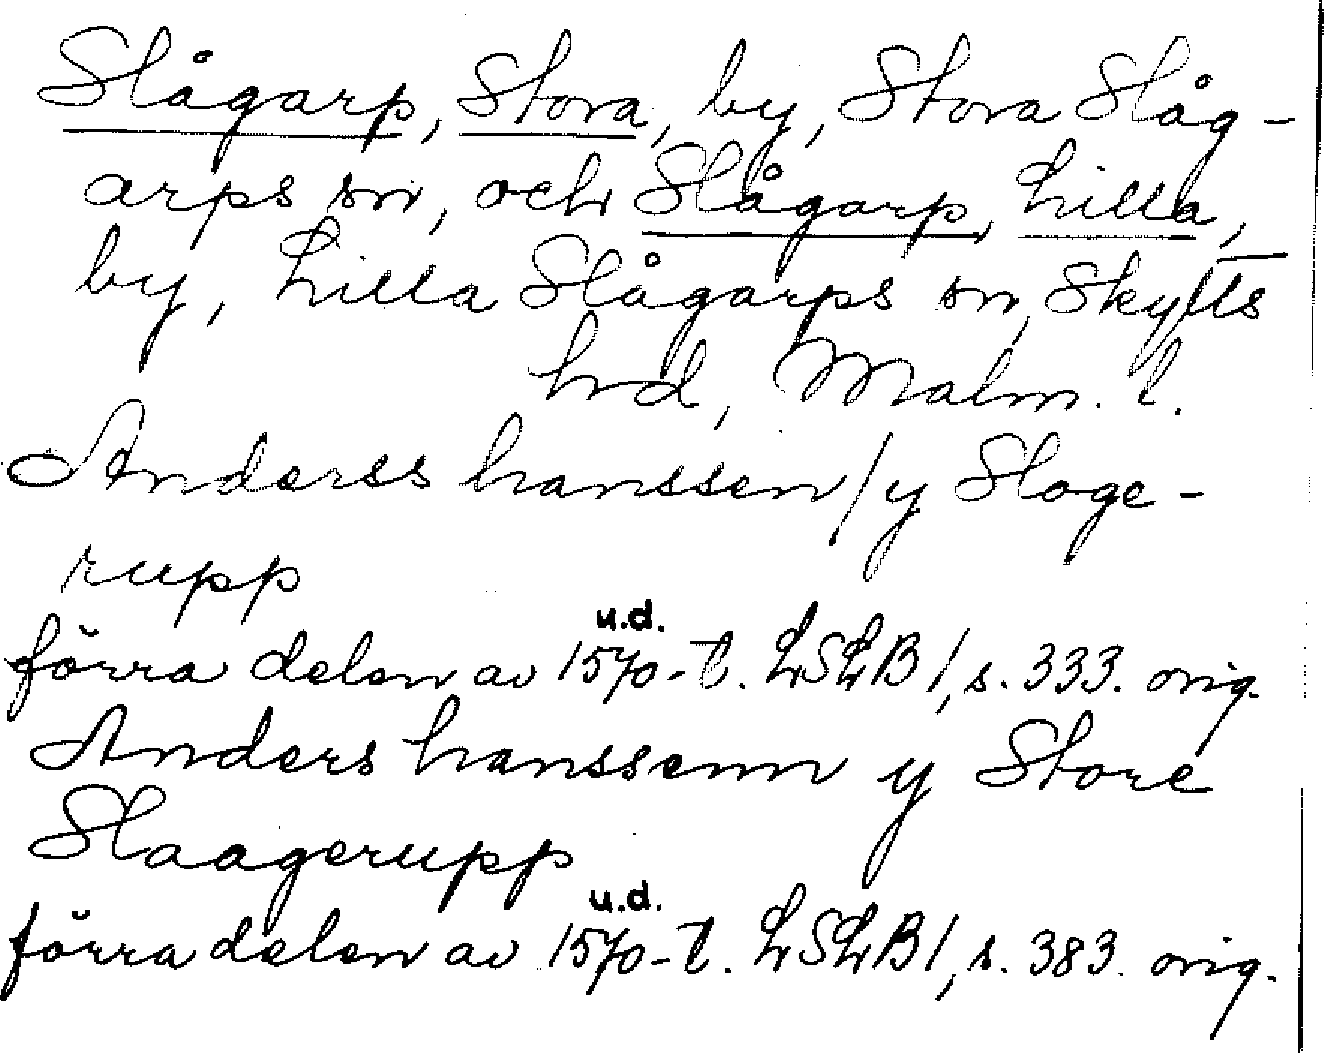 Slågarp, Stora, by, Stora Slåg-
arps sn, och Slågarp, Lilla,
by, Lilla Slågarps sn, Skytts
hrd, Malm. l.
Anderss hanssen/y Sloge-
rupp
u.d.
förra delen av 1570-t. LSLB 1, s. 333. orig.
Anders hanssenn y Store
Slaagerupp
u.d.
förra delen av 1570-t. LSLB 1, s. 383. orig.